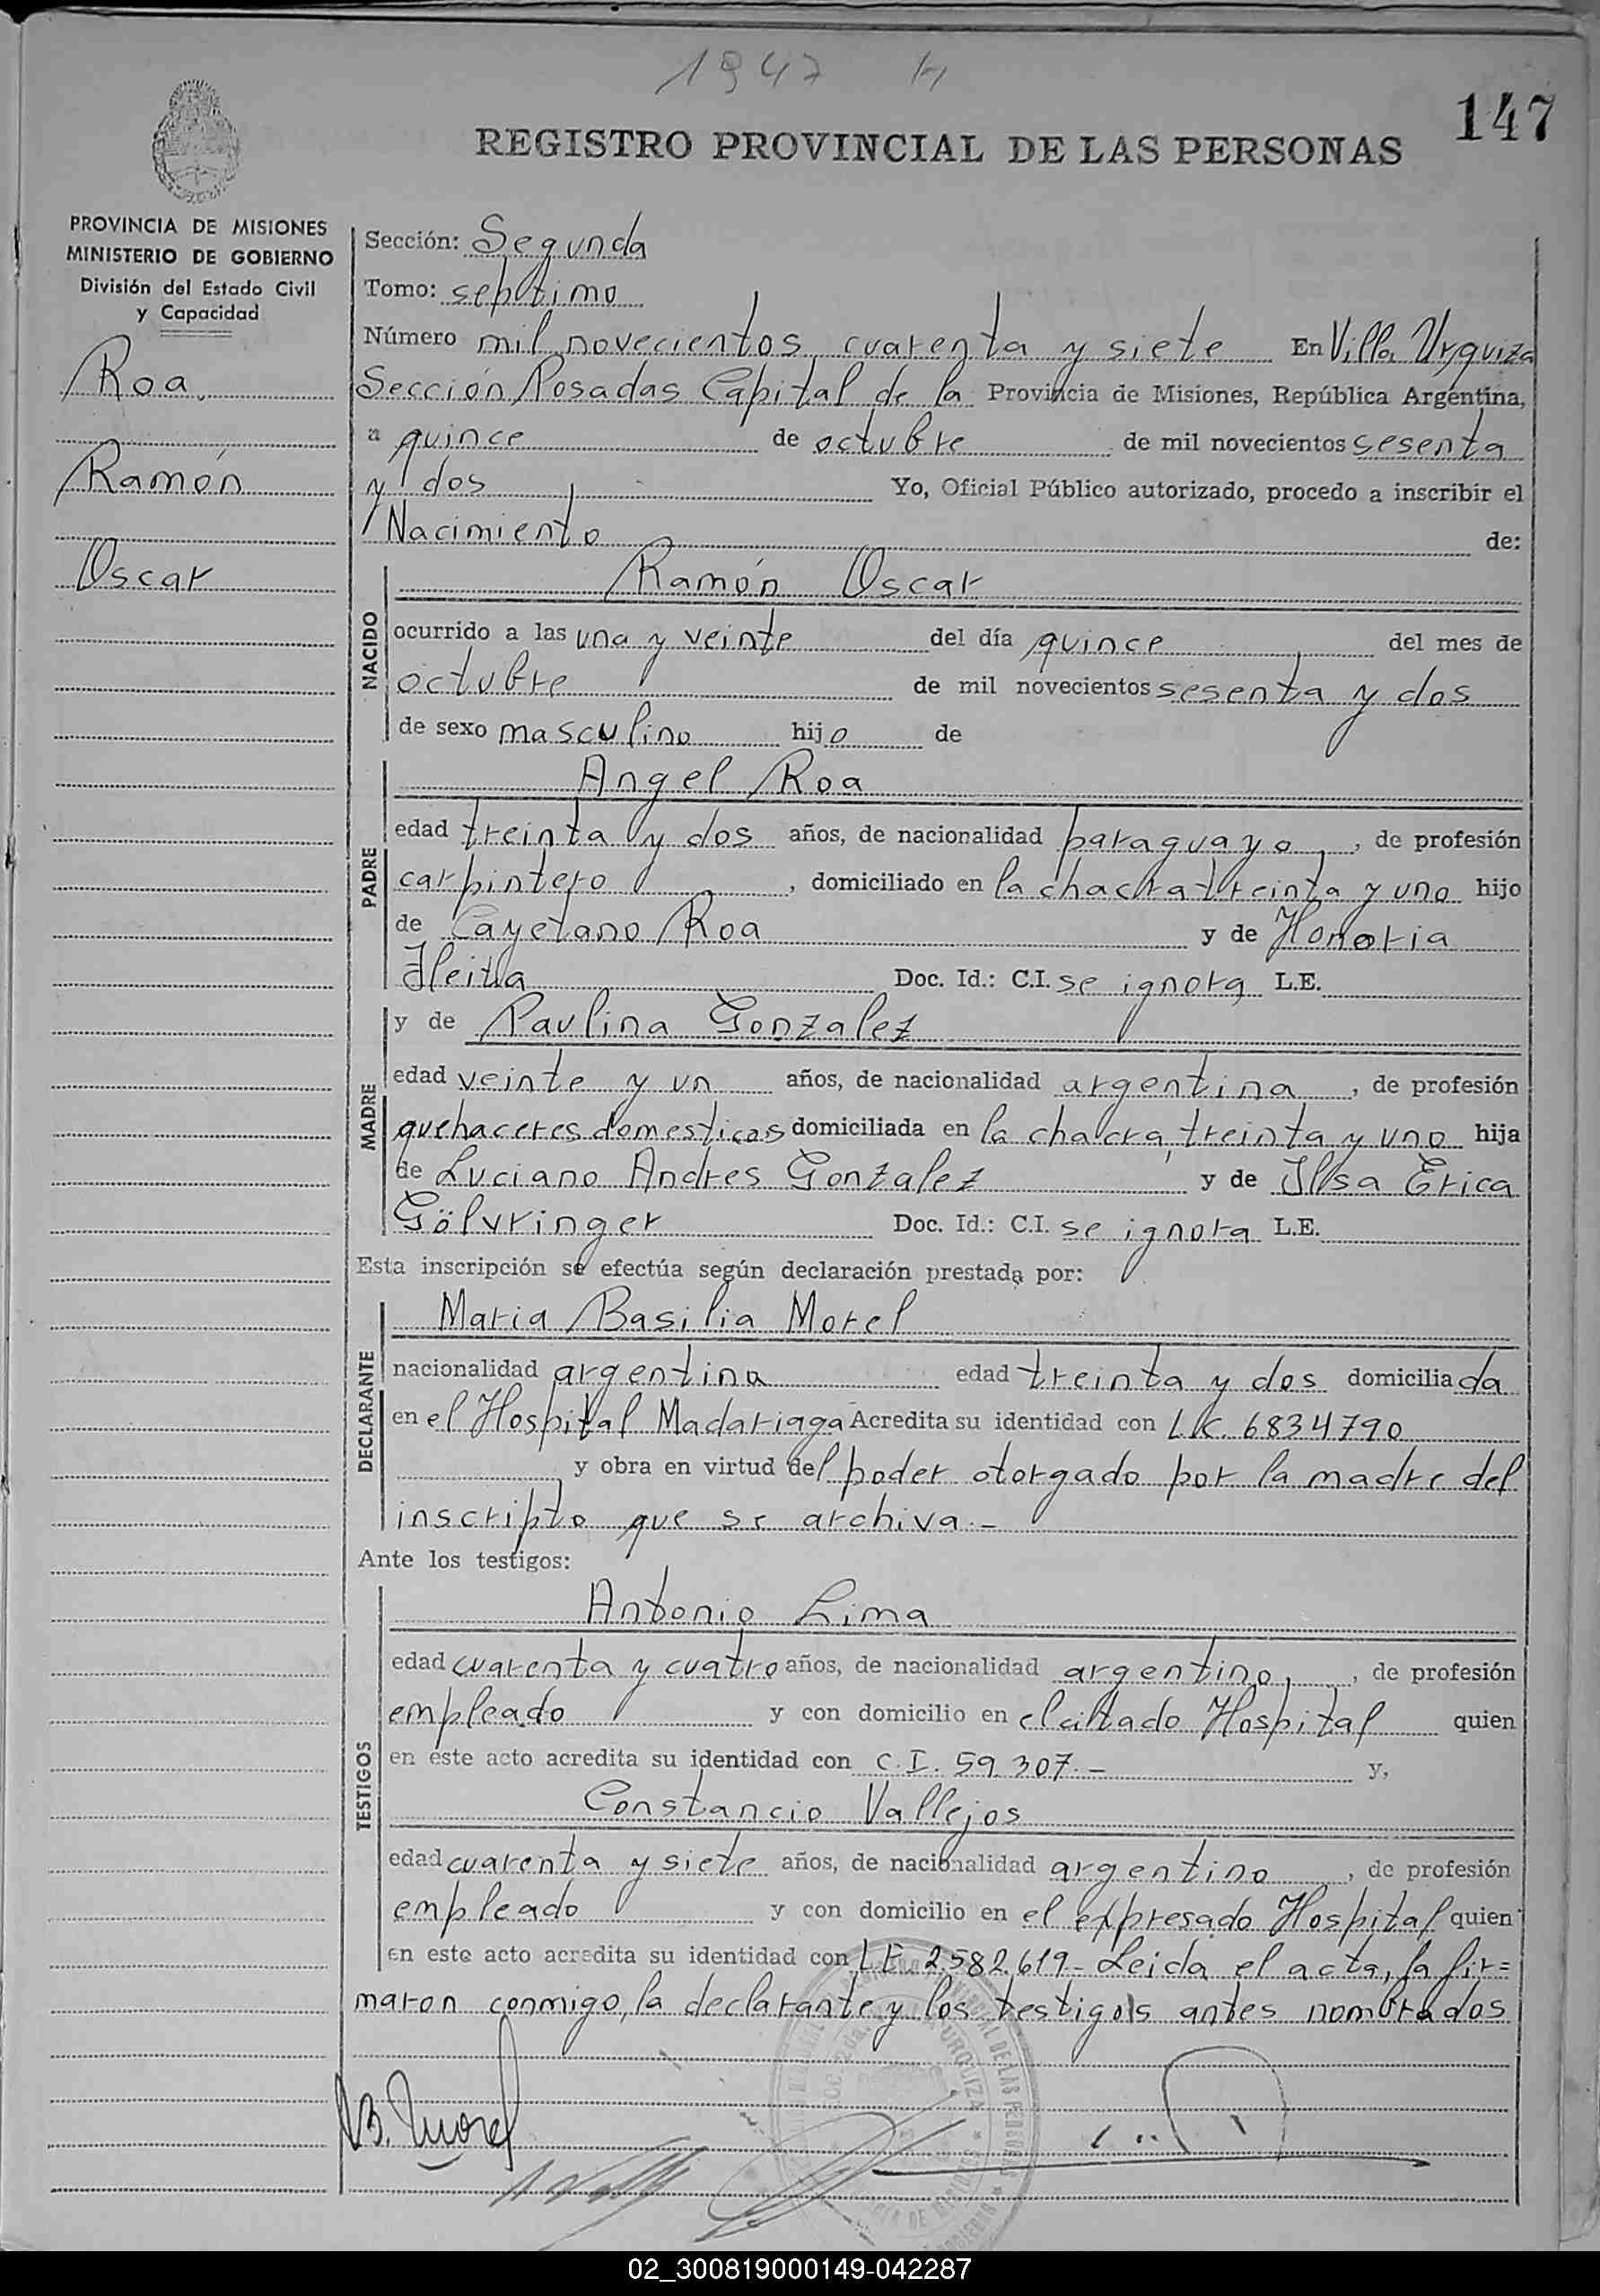 1947
147
REGISTRO PROVINCIAL DE LAS PERSONAS
PROVINCIA DE MISIONES
MINISTERIO DE GOBIERNO
División del Estado Civil
y Capacidad
Roa
Ramón
Oscar
Sección: Segunda
Tomo: septimo
Número mil novecientos cuarenta y siete En Villa Urquiza
Sección Posadas Capital de la Provincia de Misiones, República Argentina,
a quince de octubre de mil novecientos sesenta
y dos Yo, Oficial Público autorizado, procedo a inscribir el
Nacimiento de:
NACIDO
Ramón Oscar
ocurrido a las una y veinte del día quince del mes de
octubre de mil novecientos sesenta y dos
de sexo masculino hijo de
PADRE
Angel Roa
edad treinta y dos años, de nacionalidad paraguayo, de profesión
carpintero, domiciliado en la chacra treinta y uno hijo
de Cayetano Roa y de Honoria
Doc. Id.: C.I. se ignora L.E.
MADRE
y de Paulina Gonzalez
edad veinte y un años, de nacionalidad argentina, de profesión
quehaceres domesticos domiciliada en la chacra treinta y uno hija
de Luciano Andres Gonzalez y de Ilsa Erica
Gölvringer Doc. Id.: C.I. se ignora L.E.
Esta inscripción se efectúa según declaración prestada por:
DECLARANTE
Maria Basilia Morel
nacionalidad argentina edad treinta y dos domiciliada
en el Hospital Madariaga Acredita su identidad con 6834790
y obra en virtud del poder otorgado por la madre del
inscripto que se archiva.-
Ante los testigos:
TESTIGOS
Antonio Lima
edad cuarenta y cuatro años, de nacionalidad argentino, de profesión
empleado y con domicilio en el citado Hospital quien
en este acto acredita su identidad con C.I. 59.307.- y,
Constancio Vallejos
edad cuarenta y siete años, de nacionalidad argentino, de profesión
empleado y con domicilio en el expresado Hospital quien
en este acto acredita su identidad con L E 2.582.619.- Leida el acta, la fir=
maron conmigo, la declarante y los testigos antes nombrados
B. Morel
02_300819000149-042287